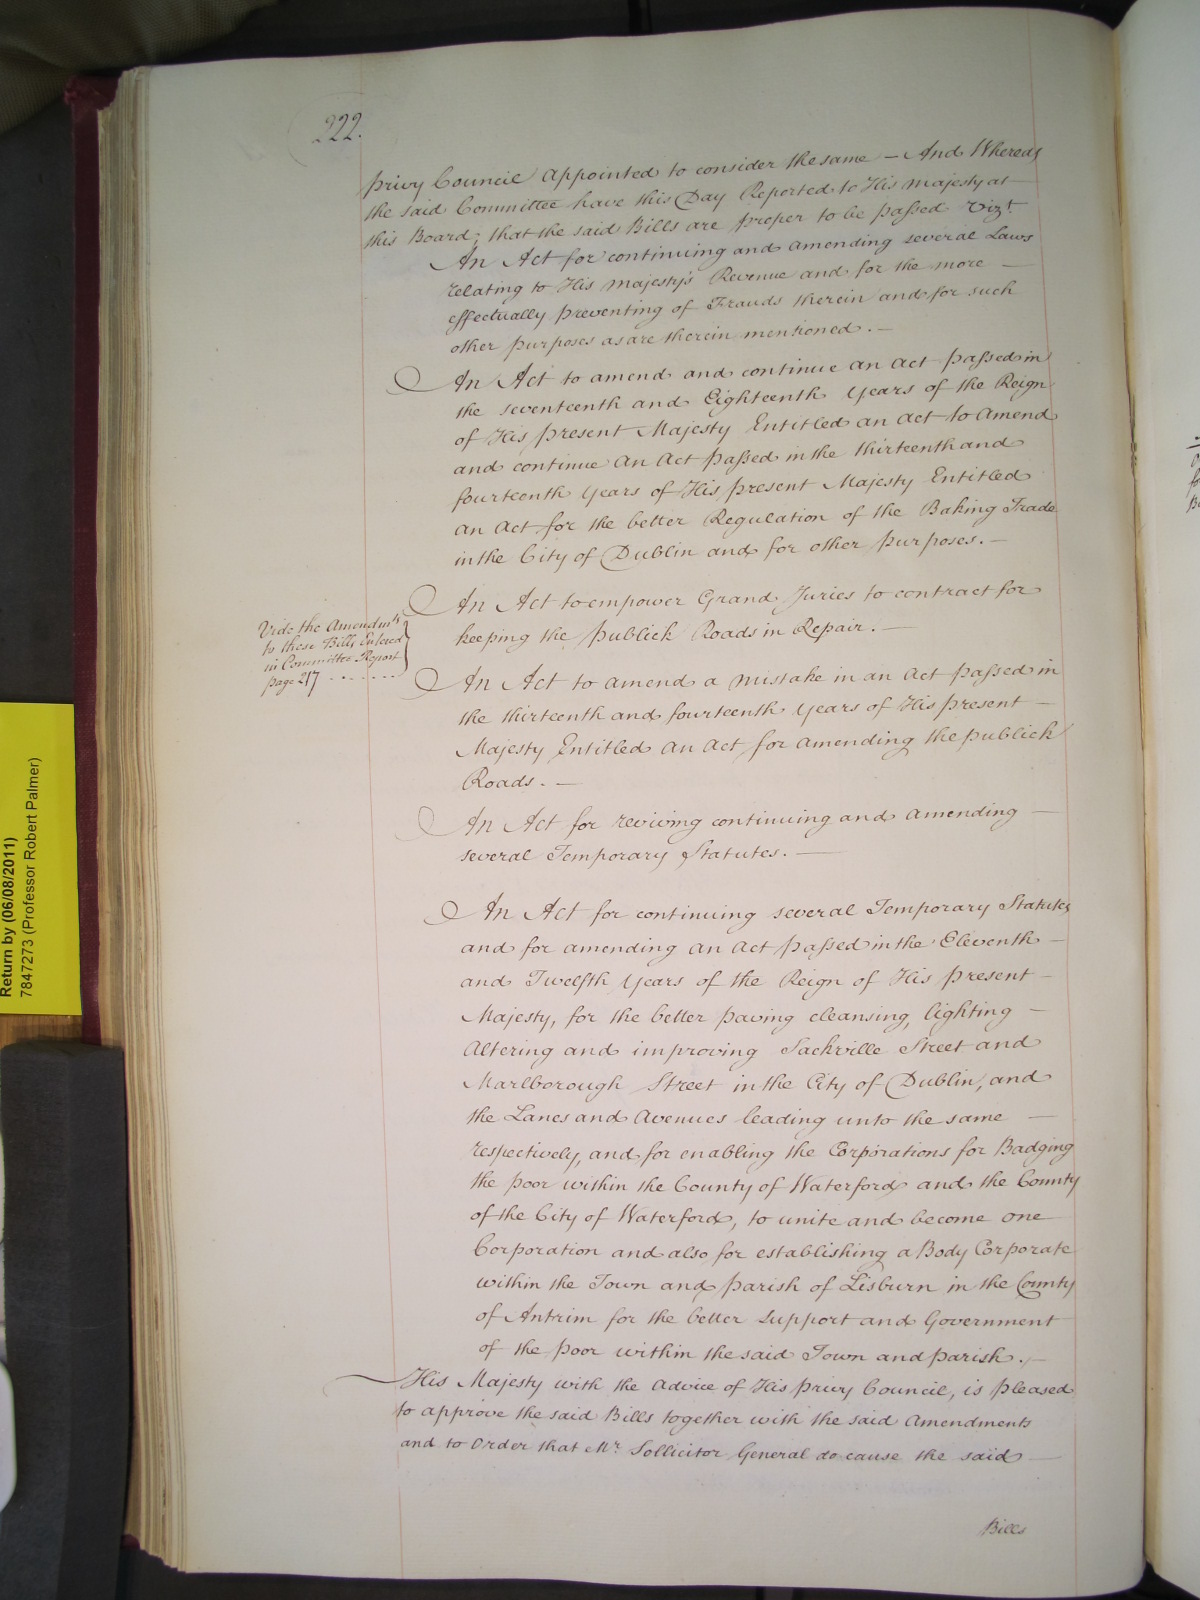 222.
privy Council appointed to consider the same – And Whereas
the said Committee have this Day Reported to His Majesty at
this Board, that the said Bills are proper to be passed Vizt.
An Act for continuing and amending several Laws
relating to His Majesty's Revenue and for the more –
effectually preventing of Frauds therein and for such
other purposes as are therein mentioned. –
An Act to amend and continue an Act passed in
the seventeenth and Eighteenth years of the Reign
of His present Majesty Entitled an Act to Amend
and continue an Act passed in the thirteenth and
fourteenth years of His present Majesty Entitled
an Act for the better Regulation of the Baking Trade
in the City of Dublin and for other purposes. –
An Act to empower Grand Juries to contract for
keeping the publick Roads in Repair. –
Vide the Amendmts
to these Bills Entered
in Committee Report
page 217 . . . . . . .
An Act to amend a mistake in an Act passed in
the thirteenth and fourteenth years of His present –
Majesty Entitled an Act for amending the publick
Roads. –
An Act for reviving continuing and amending –
several Temporary Statutes. –
An Act for continuing several Temporary Statutes
and for amending an Act passed in the Eleventh –
and Twelfth years of the Reign of His present –
Majesty, for the better paving cleansing, lighting –
altering and improving Sackville Street and
Marlborough Street in the City of Dublin, and
the Lanes and Avenues leading unto the same –
respectively, and for enabling the Corporations for Badging
the poor within the County of Waterford and the County
of the City of Waterford, to unite and become one
Corporation and also for establishing a Body Corporate
within the Town and parish of Lisburn in the County
of Antrim for the better support and Government
of the poor within the said Town and parish. –
His Majesty with the Advice of His privy Council, is pleased
to approve the said Bills together with the said Amendments
and to Order that Mr. Sollicitor General do cause the said –
Bills
Return by (06/08/2011)
7847273 (Professor Robert Palmer)